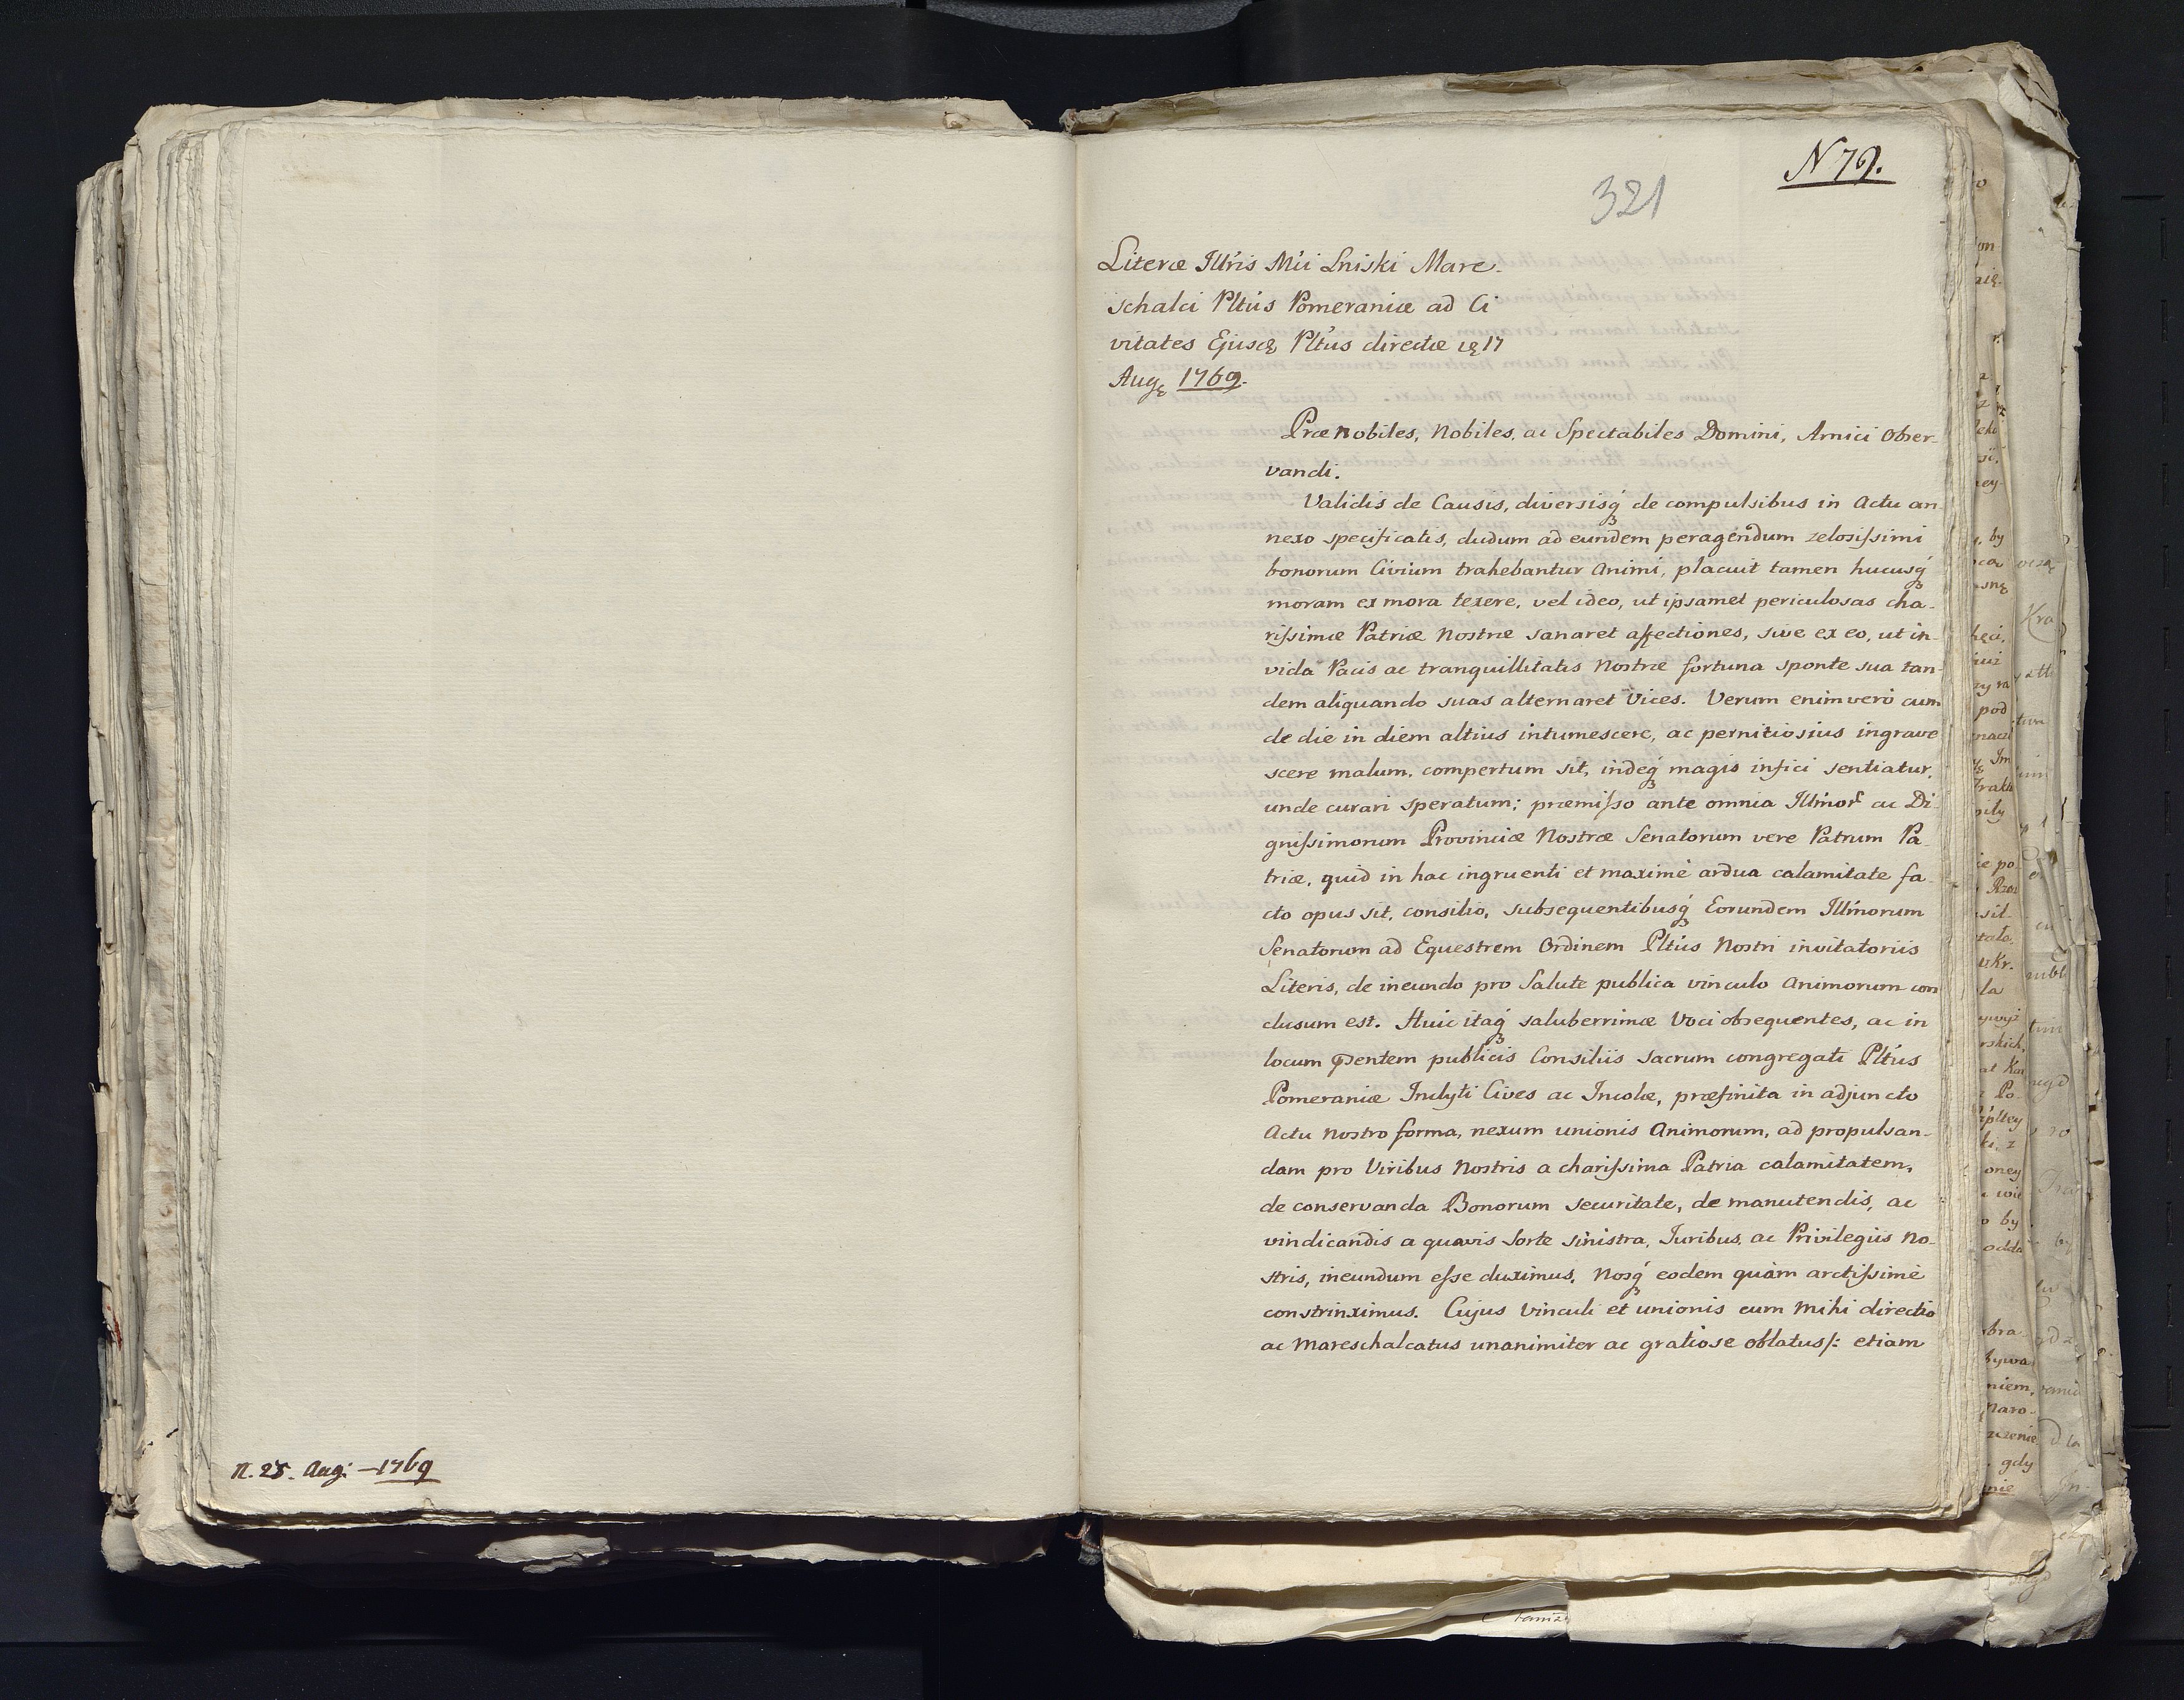 n. 25. Augi — 1769
N 79.
321
Literæ Illris Mći Lniski Mare-
schalci Pltus Pomeraniæ ad Ci
vitates Ejusdę Pltus directæ 17
Augę 1769.
Præ nobiles, Nobiles, ac Spectabiles Domini, Amici Obser-
vandi.
Validis de Causis, diversisq́ de compulsibus in Actu an
nexo specificatis, dudum ad eundem peragendum zelosissimi
bonorum Civium trahebantur Animi, placuit tamen hucusq́
moram ex mora texere, vel ideo, ut ipsamet periculosas cha-
rissimæ Patriæ Nostræ sanaret affectiones, sive ex eo, ut in-
vida Pacis ac tranquillitatis Nostræ fortuna sponte sua tan-
dem aliquando suas alternaret Vices. Verum enimverò cum
de die in diem altius intumescere, ac pernitiosius ingrave
scere malum, compertum sit, indeq́ magis infici sentiatur,
unde curari speratum; præmisso ante omnia Illmor ac Di-
gnissimorum Provinciæ Nostræ Senatorum vere Patrum Pa
triæ, quid in hac ingruenti et maximè ardua calamitate fa-
cto opus sit, consilio, subsequentibusq́ Eorundem Illmorum
Senatorum ad Equestrem Ordinem Pltus Nostri invitatoriis
Literis, de ineundo pro Salute publica vinculo Animorum con
clusum est. Huic itaq́ saluberrimæ Voci obsequentes, ac in
locum publicis Consiliis sacrum congregati Pltus
Pomeraniæ Inclyti Cives ac Incolæ, præfinita in adjuncto
Actu Nostro forma, nexum unionis Animorum, ad propulsan-
dam pro Viribus Nostris a charissima Patria calamitatem,
de conservanda Bonorum securitate, de manutendis, ac
vindicandis a quavis Sorte sinistra, Juribus, ac Privilegiis No-
stris, ineundum esse duximus, Nosq́ eodem quàm arctissimè
constrinximus. Cujus Vinculi et unionis cum Mihi directio
ac Mareschalcatus unanimiter ac gratiose oblatus /: etiam